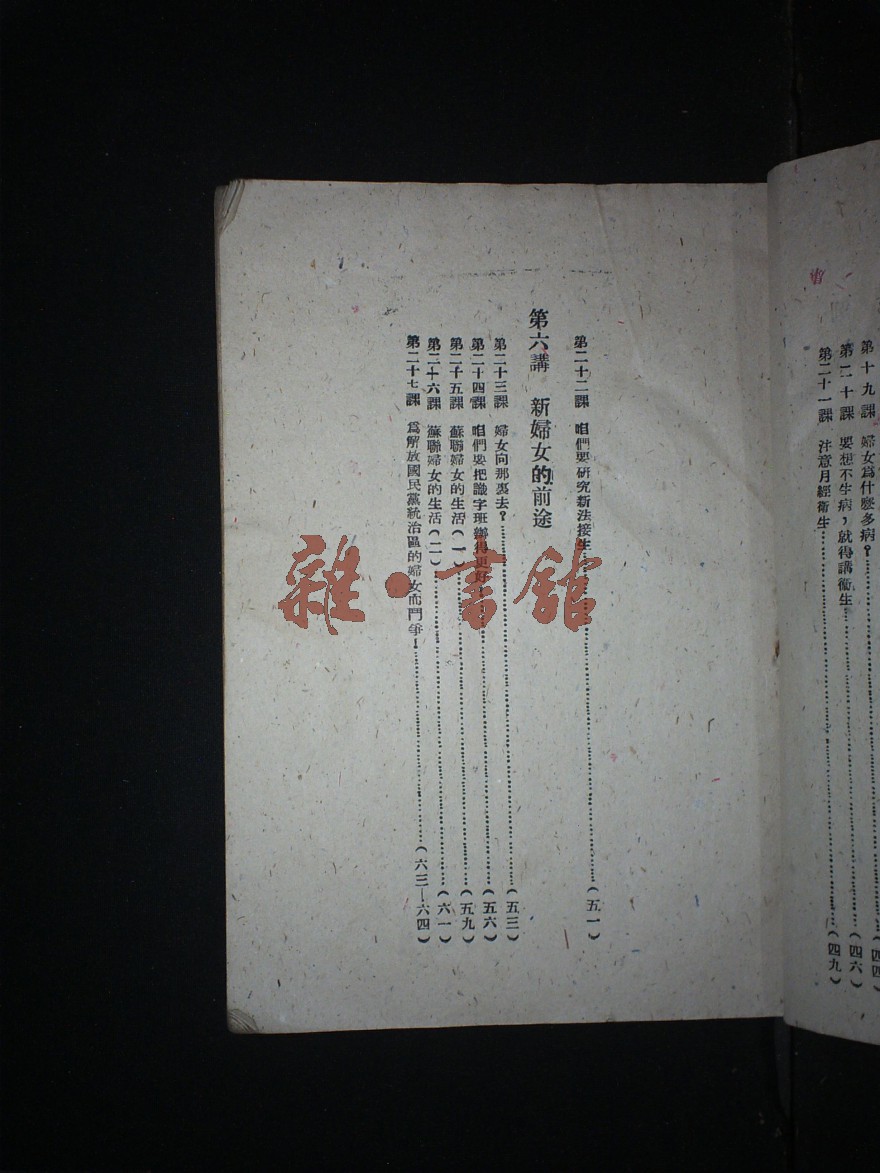 第十九課　婦女爲什麽多病？……(四四)
第二十課　要想不生病，就得講衞生……(四六)
第二十一課　注意月經衞生……(四九)
第二十二課　咱們要硏究新法接生……(五一)
第六講　新婦女的前途
第二十三課　婦女向那裏去？……(五三)
第二十四課　咱們要把識字班辦得更好！……(五六)
第二十五課　蘇聯婦女的生活(一)……(五九)
第二十六課　蘇聯婦女的生活(二)……(六一)
第二十七課　爲解放國民黨統治區的婦女而鬥爭！……(六三—六四)
雜·書館